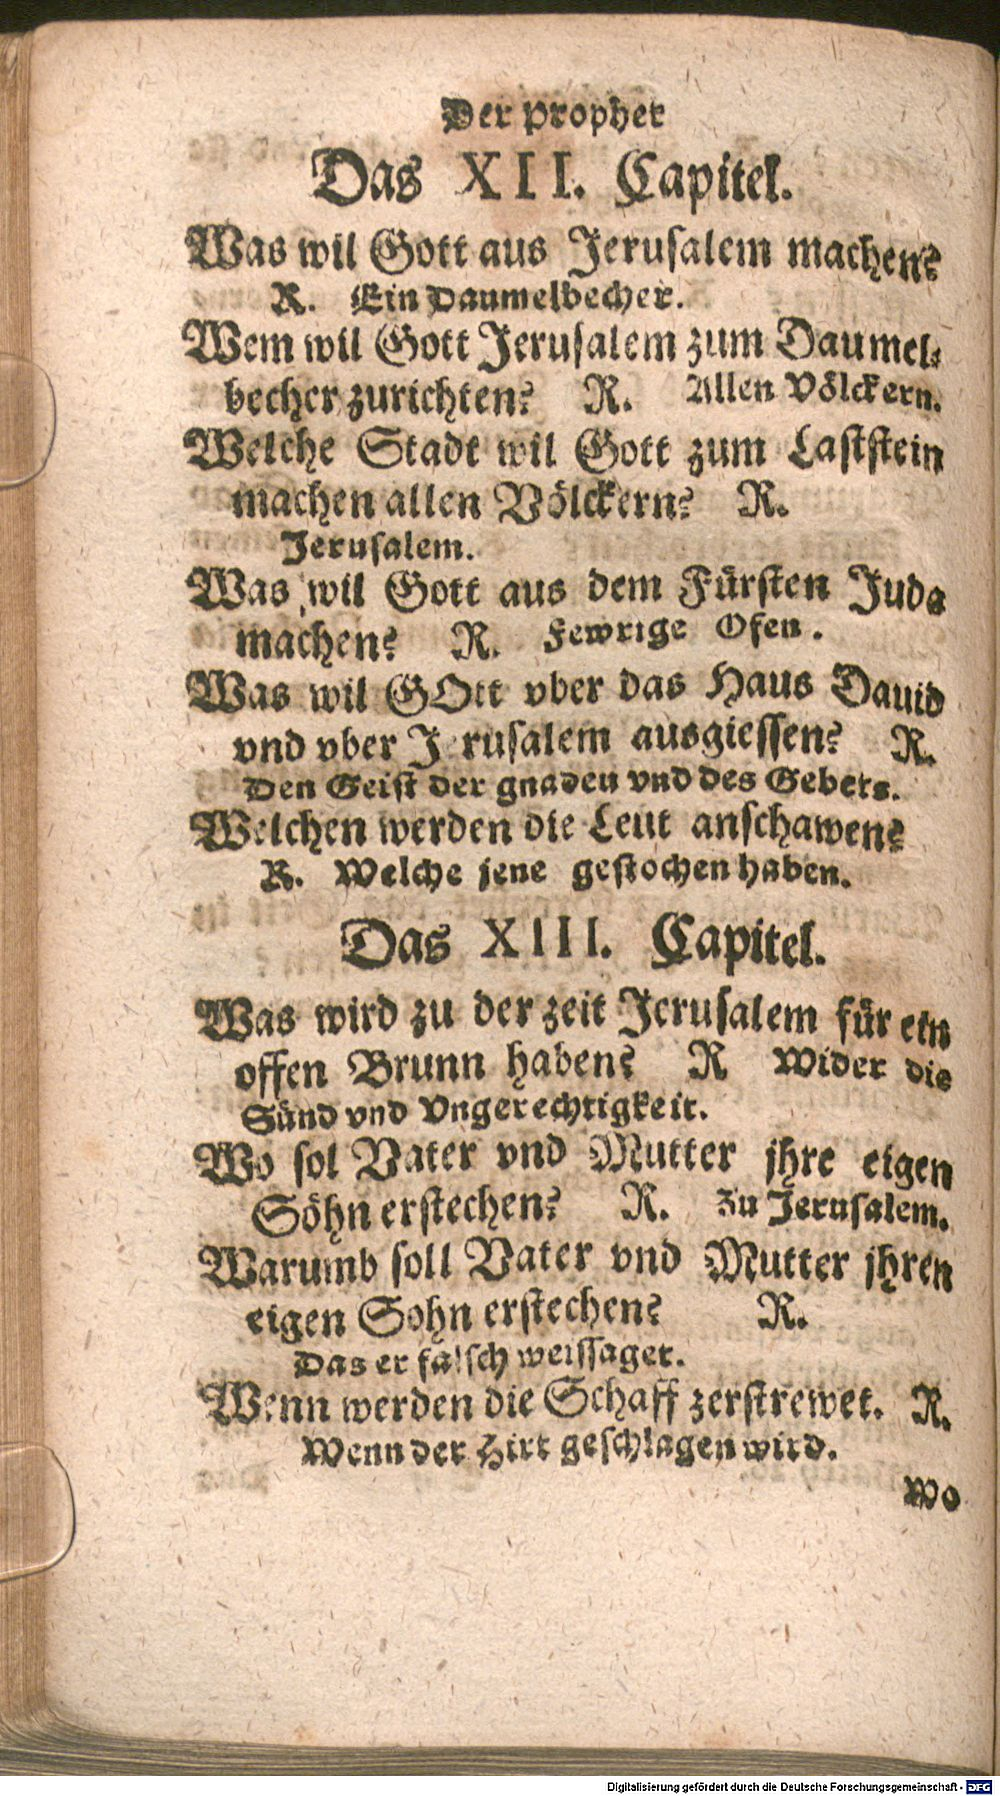 Der Prophet
Das XII. Capitel.
Was wil Gott aus Jerusalem machen?
R. Ein Daumelbecher.
Wem wil Gott Jerusalem zum Daumel-
becher zurichten? R. Allen Völckern.
Welche Stadt wil Gott zum Laststein
machen allen Völckern? R.
Jerusalem.
Was wil Gott aus dem Fürsten Juda
machen? R. Fewrige Ofen.
Was wil GOtt vber das Haus Dauid
vnd vber J rusalem ausgiessen? R.
Den Geist der gnaden vnd des Gebets.
Welchen werden die Leut anschawen?
R. Welche jene gestochen haben.
Das XIII. Capitel.
Was wird zu der zeit Jerusalem für ein
offen Brunn haben? R Wider die
Sünd vnd Vngerechtigkeit.
Wo sol Vater vnd Mutter jhre eigen
Söhn erstechen? R. Zu Jerusalem.
Warumb soll Vater vnd Mutter jhren
eigen Sohn erstechen? R.
Das er falsch weissaget.
Wenn werden die Schaff zerstrewet. R.
Wenn der Hirt geschlagen wird.
Wo
Digitalisierung gefördert durch die Deutsche Forschungsgemeinschaft - DFG